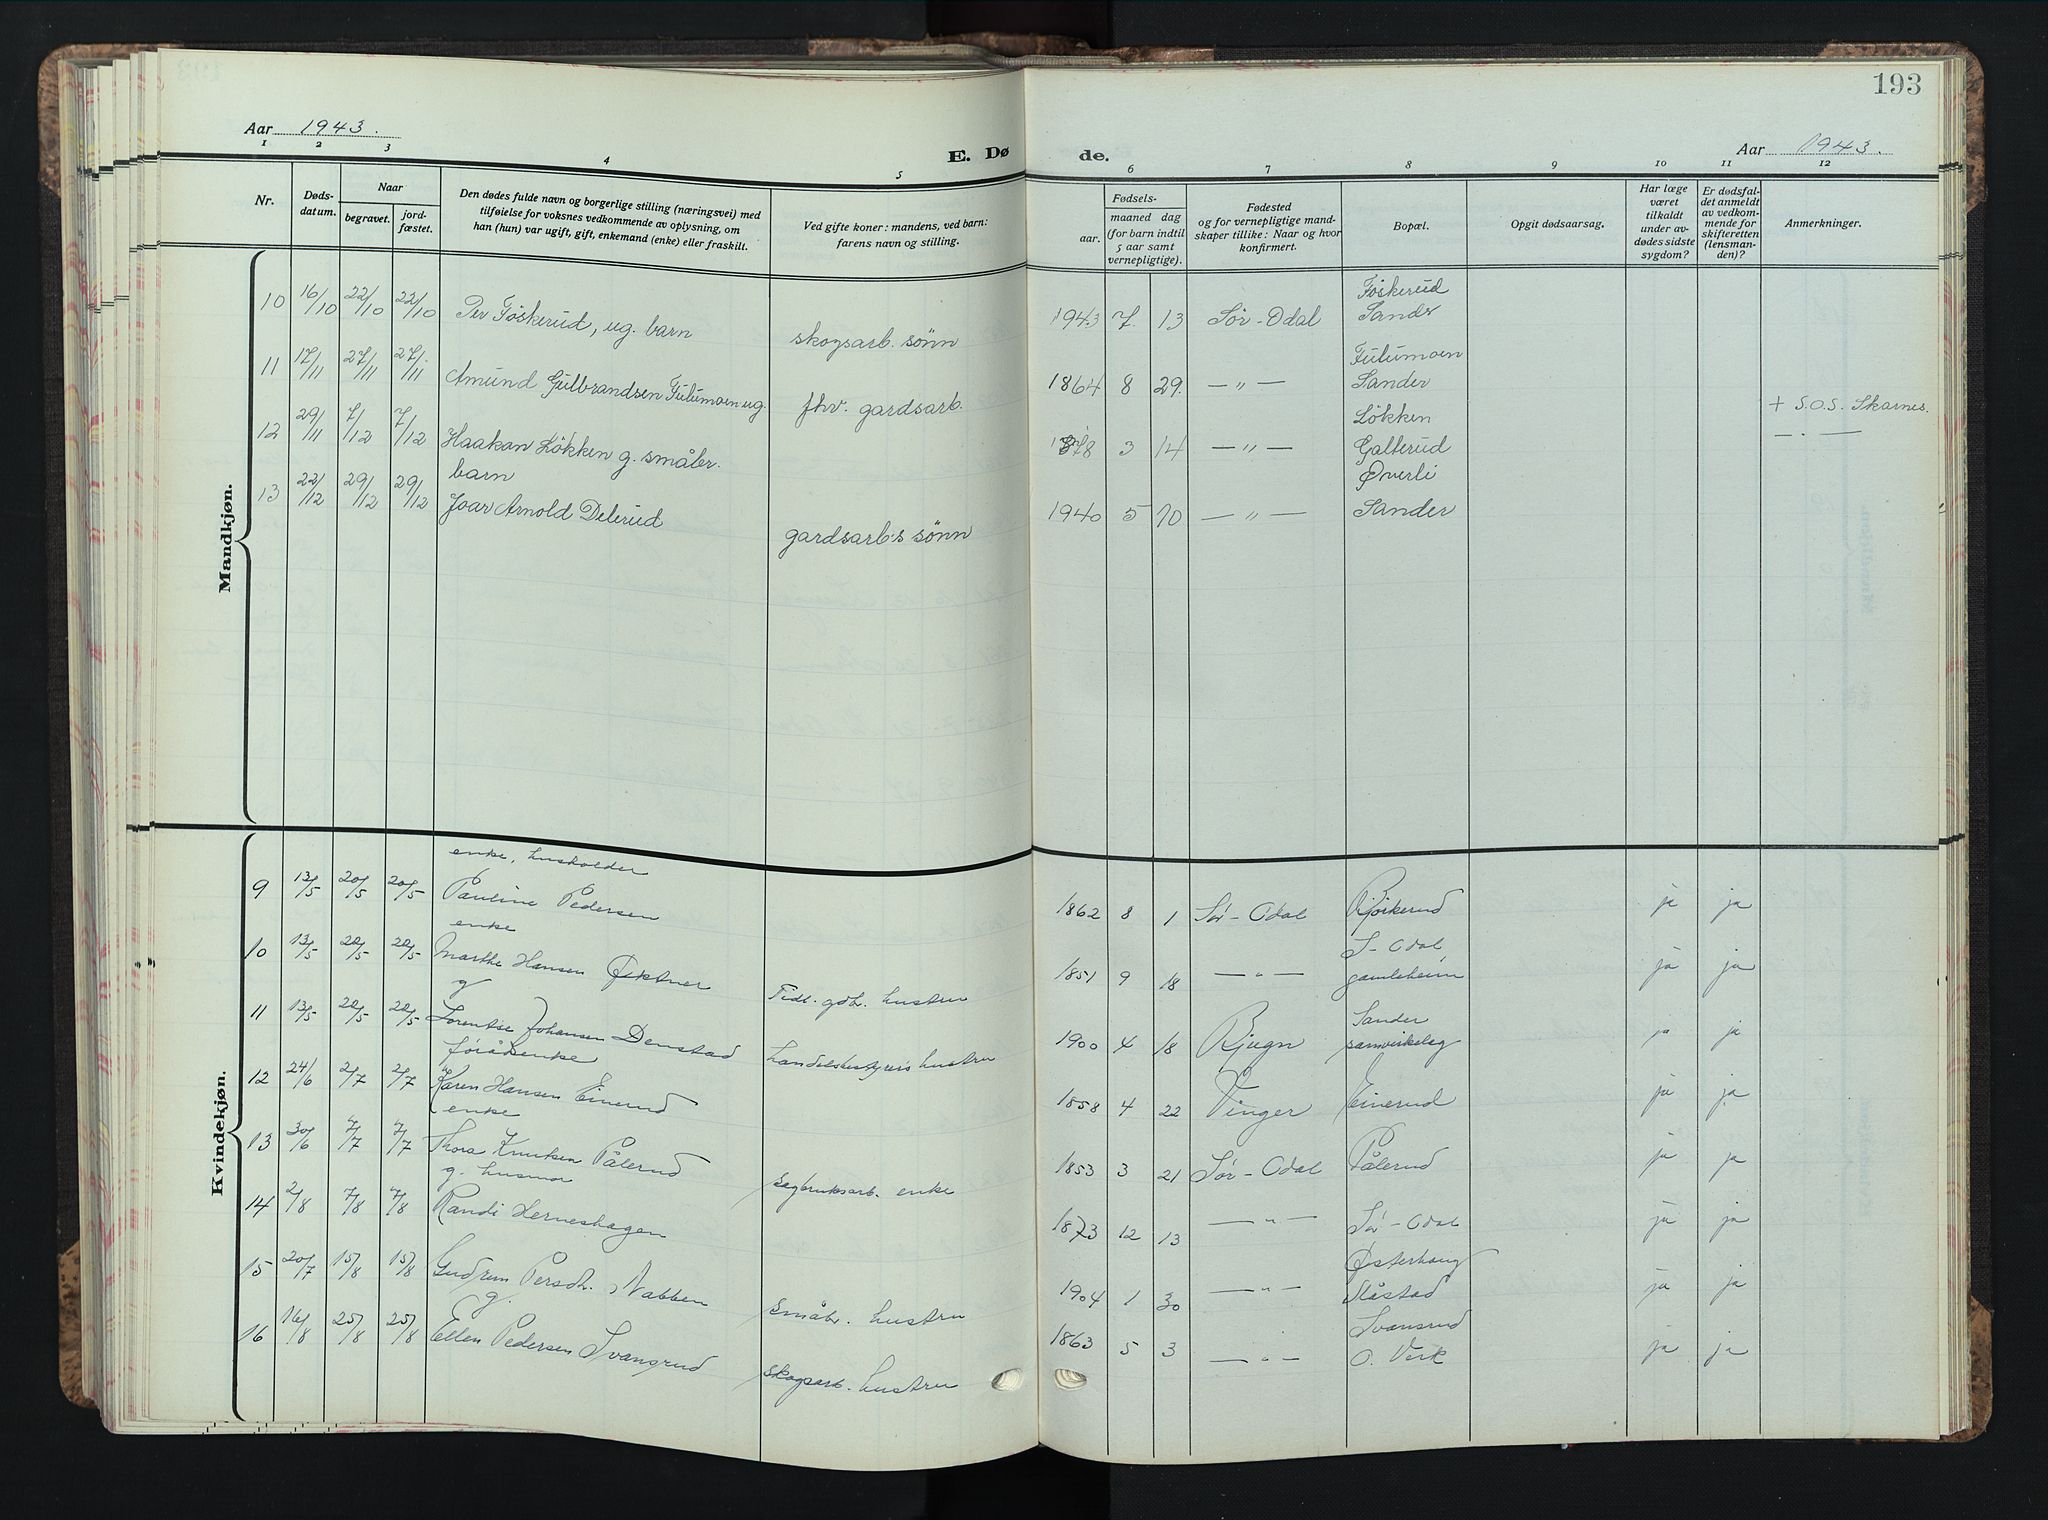 193
Aar 1943.
E. Døde.
Aar 1943.
1 2 3 4 5 6 7 8 9 10 11 12
Nr.
Dødsdatum.
Naar
begravet.
jordfæstet.
Den dødes fulde navn og borgerlige stilling (næringsvei) med
tilføielse for voksnes vedkommende av oplysning, om
han (hun) var ugift, gift, enkemand (enke) eller fraskilt.
Ved gifte koner: mandens, ved barn:
farens navn og stilling.
Fødsels-
aar.
maaned dag
(for barn indtil
5 aar samt
vernepligtige).
Fødested
og for vernepligtige mandskaper tillike: Naar og hvor
konfirmert.
Bopæl.
Opgit dødsaarsag.
Har læge
været
tilkaldt
under avdødes sidste
sygdom?
Er dødsfaldet anmeldt
av vedkommende for
skifteretten
(lensmanden)?
Anmerkninger.
Mandkjøn.
10 16/10 22/10 22/10 Per Föskerud, ug. barn skogsarb. sønn 1943 7. 13 Sør-Odal Föskerud Sander
11 17/11 27/11 27/11 Amund Gulbrandsen Fulumoen ug. fhv. gardsarb. 1864 8 29. — " — Fulumoen Sander
+ S.O.S. Skarnes.
12 29/11 7/12 7/12 Haakan Løkken g. småbr. 1878 3 14 — " — Løkken Galterud — . —
13 22/12 29/12 29/12 barn Joar Arnold Delerud gardsarb.s sønn 1940 5 10 — " — Øverli Sander
Kvindekjøn.
9 13/5 20/5 20/5 enke, husholder Pauline Pedersen 1862 8 1 Sør-Odal Bjørkerud ja ja
10 13/5 20/5 20/5 enke Marthe Hansen Øktner Tidl. gdbr. hustru 1851 9 18 — " — S-Odal gamleheim ja ja
11 13/5 20/5 20/5 g Lorentse Johansen Demstad handelsbestyrers hustru 1900 4 18 Bjugn Sander samvirkelag ja ja
12 24/6 2/7 2/7 førådsenke Karen Hansen Einerud 1858 4 22 Vinger Einerud ja ja
13 30/6 7/7 7/7 enke Thora Knutsen Pålerud Sagbruksarb. enke 1853 3 21 Sør-Odal Pålerud ja ja
14 2/8 7/8 7/8 g. husmor Randi Herneshagen 1873 12 13 — " — Sør-Odal ja ja
15 20/7 15/8 15/8 Gudrun Persdh. Nabben Småbr. hustru 1904 1 30 — " — Østerhaug Slåstad ja ja
16 16/8 25/8 25/8 g. Ellen Pedersen Svansrud Skogsarb. hustru 1863 5 3 — " — Svansrud O. Verk ja ja